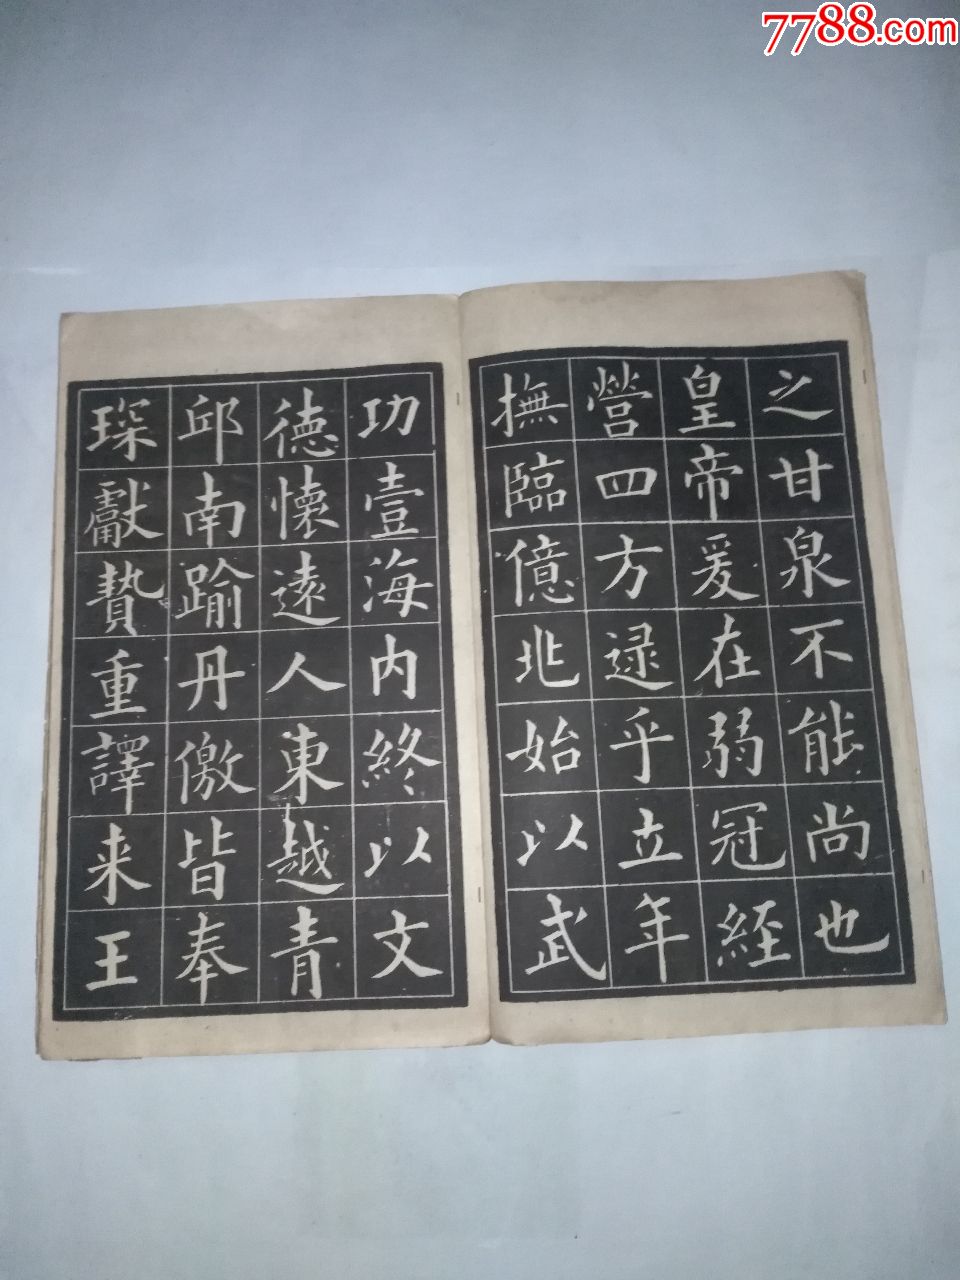 7788.com
之甘泉不能尚也
皇帝爰在弱冠經
營四方逯乎立年
撫臨億兆始以武
功壹海内終以文
德懷遠人東越青
邱南踰丹儌皆奉
琛獻贄重譯来王